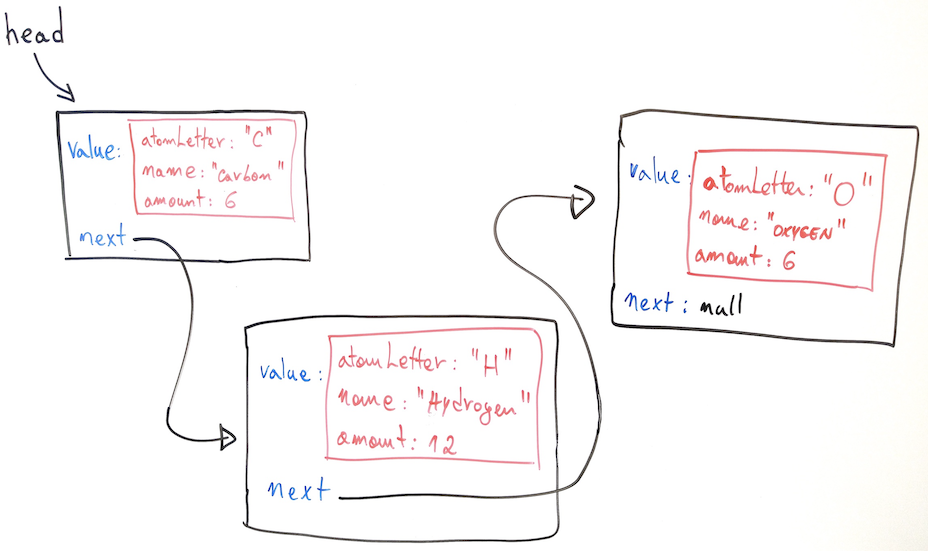 head
value:
atomLetter: "C"
name: "Carbon"
amount: 6
next
value:
atomLetter: "H"
name: "Hydrogen"
amount: 12
next
value:
atomLetter: "O"
name: "OXYGEN"
amount: 6
next: null